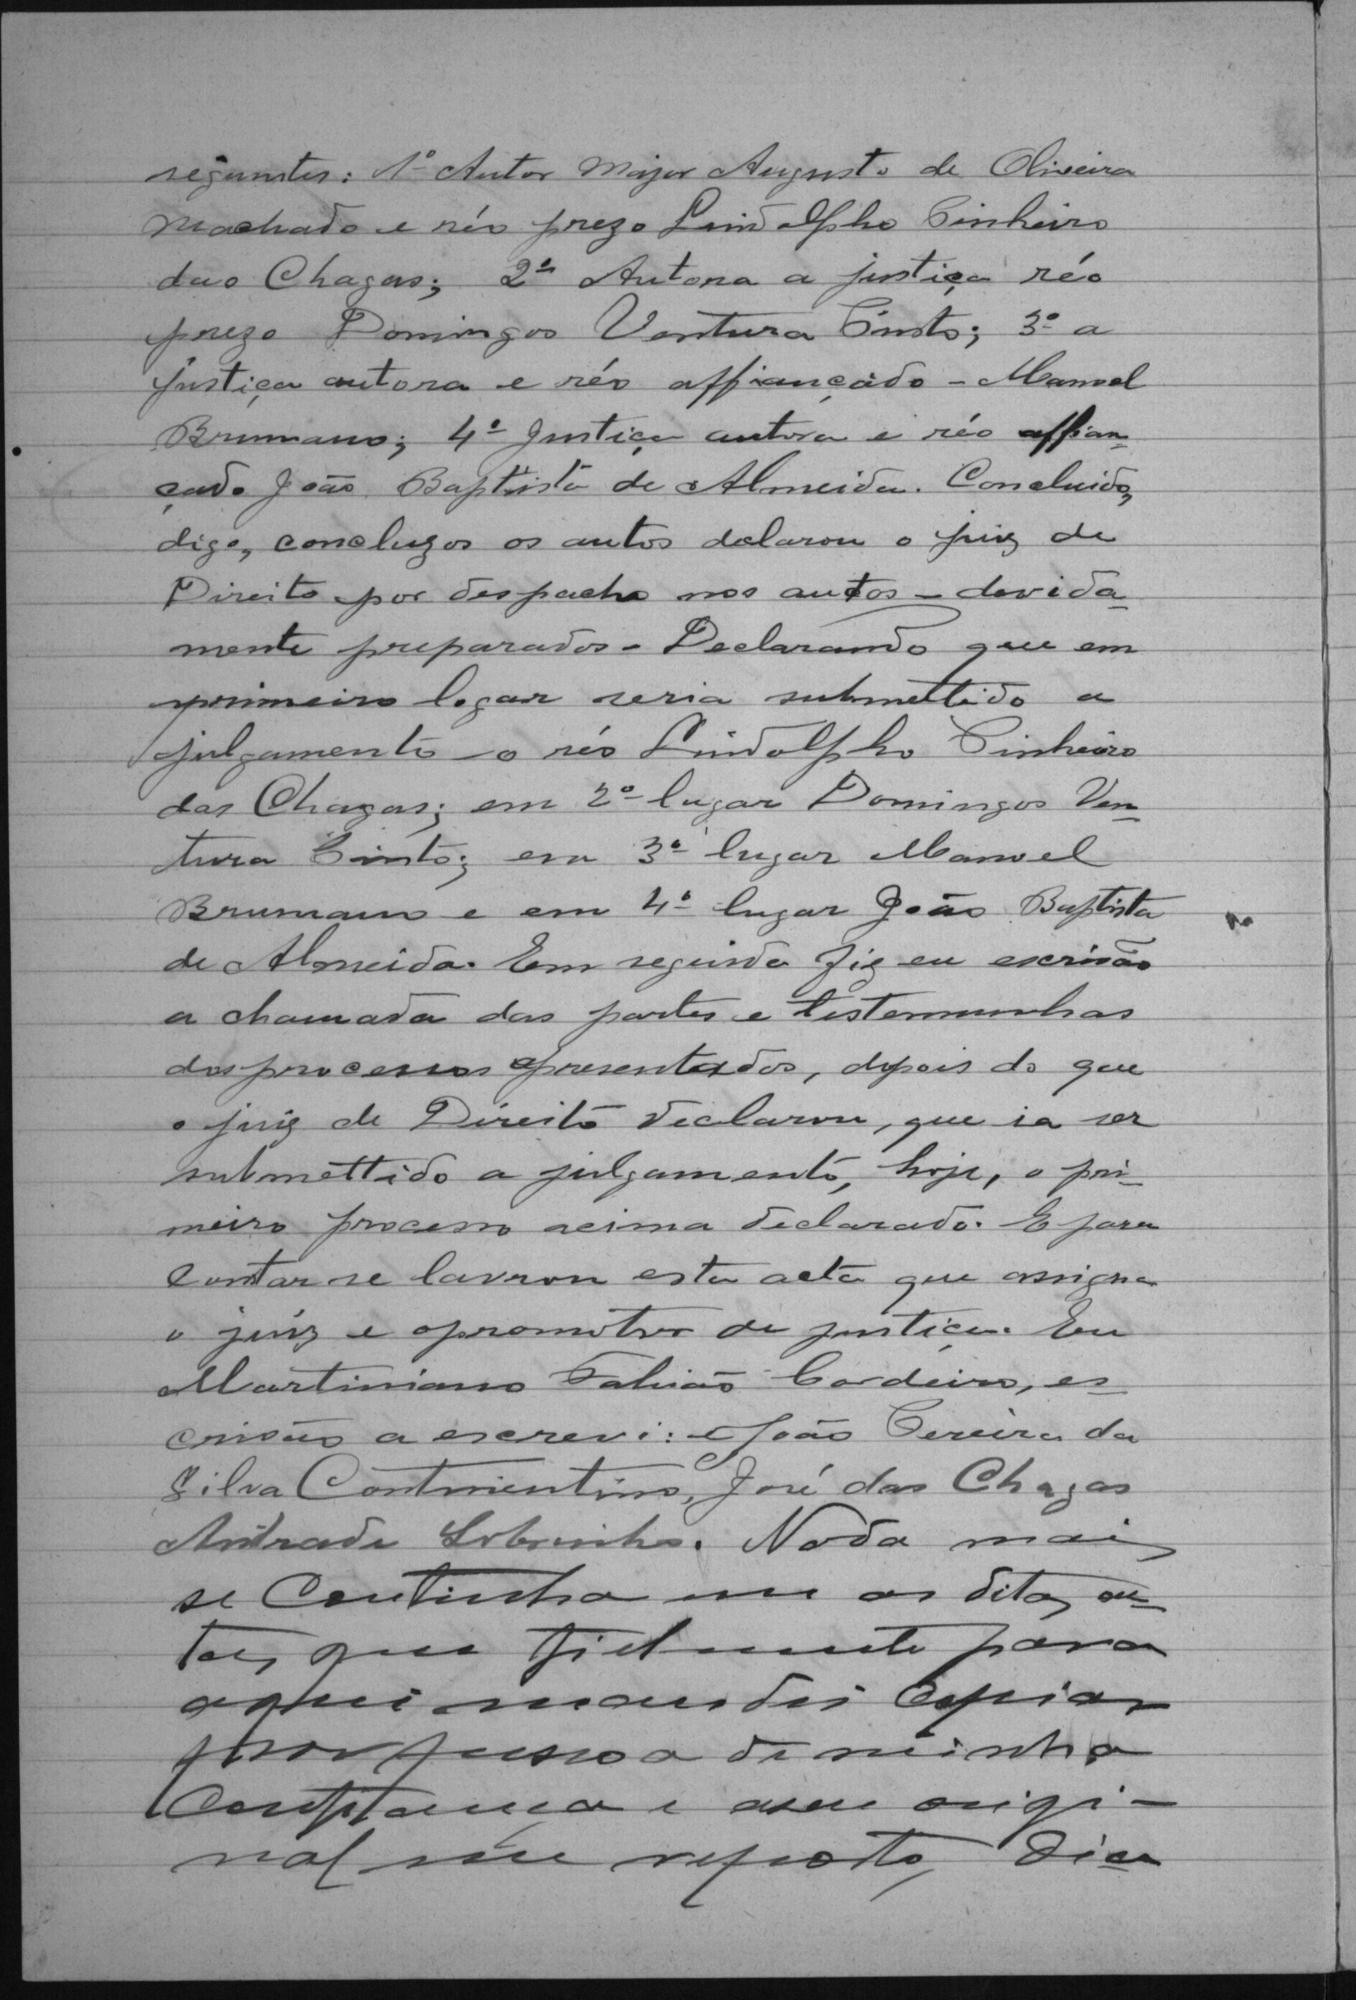 seguintes: 1º Autor Major Augusto de Oliveira
Machado e réo prezo Lindolpho Pinheiro
das Chagas; 2º Autora a justiça réo
prezo Domingos Ventura Pinto; 3º a
justiça autora e réo affiançado - Manoel
Brumano; 4º Justiça autora e réo affian-
çado João Baptista de Almeida. Concluido,
digo, concluzos os autos delarou o juiz de
Direito por despacho nos autos - devida-
mente preparados - Declarando que em
primeiro logar seria submettido a
julgamento o réo Lindolpho Pinheiro
das Chagas; em 2º lugar Domingos Ven-
tura Pinto; em 3º lugar Manoel
Brumano e em 4º lugar João Baptista
de Almeida. Em seguida fiz eu escrivão
a chamada das partes e testemunhas
dos processos apresentados, depois do que
o juiz de Direito declarou, que ia ser
submettido a julgamento, hoje, o pri-
meiro processo acima declarado. E para
constar se lavrou esta acta que assigna
o juiz e o promotor de justiça. Eu
Martiniano Fabião Cordeiro, es-
crivão a escrevi: João Pereira da
Silva Continentino, José das Chagas
Andrade Sobrinho. Nada mais
se Continha em os ditos au-
tos, que fielmente para
aqui mandei Copiar
por pessoa de minha
Confiança e a seu origi-
nal me reporto, dou